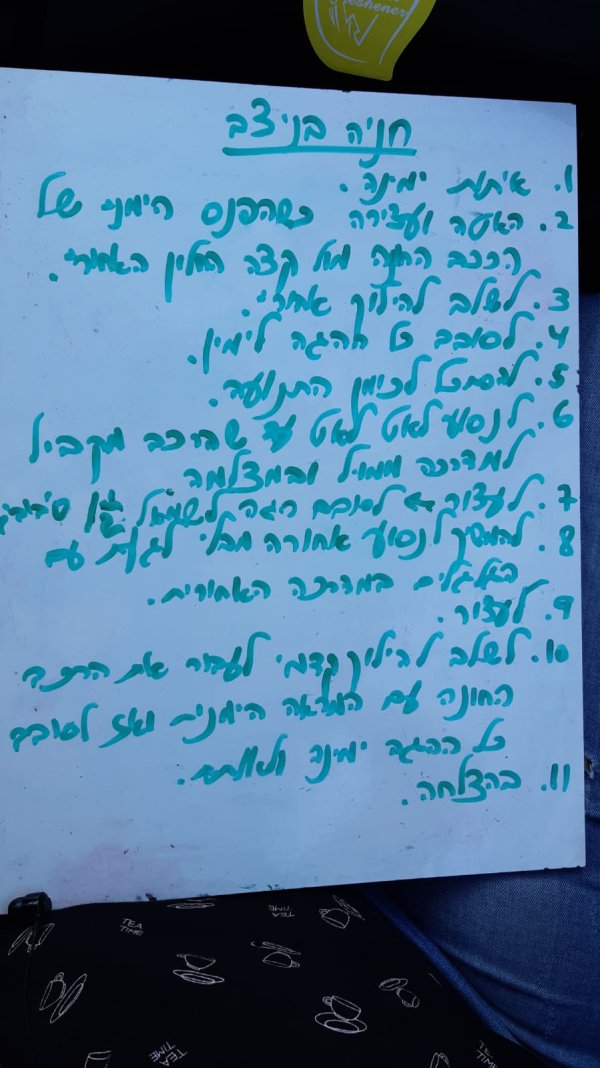 freshener
חניה בניצב
1. איתות ימינה.
2. האטה ועצירה כשהפנס הימני של
הרכב החונה מול קצה החלון האחורי.
3. לשלב להילוך אחורי.
4. לסובב כל ההגה לימין.
5. להסתכל לכיוון התנועה.
6. לנסוע לאט לאט עד שהרכב מקביל
למדרכה ממול ובמצלמה
7. לעצור ← לסובב הגה לשמאל 1/2 1 סיבוב
8. להמשיך לנסוע אחורה מבלי לגעת עם
הגלגלים במדרכה האחורית.
9. לעצור.
10. לשלב להילוך קדמי לעבור את הרכב
החונה עם המראה הימנית ואז לסובב
כל ההגה ימינה
11. בהצלחה.
TEA TIME
TEA TIME
TEA TIME
TEA TIME
TEA TIME